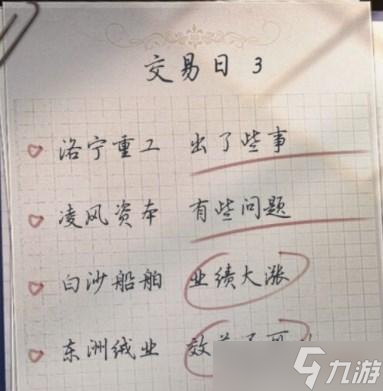 交易日 3
洛宁重工 出了些事
凌风资本 有些问题
白沙船舶 业绩大涨
东洲绒业 效
九游